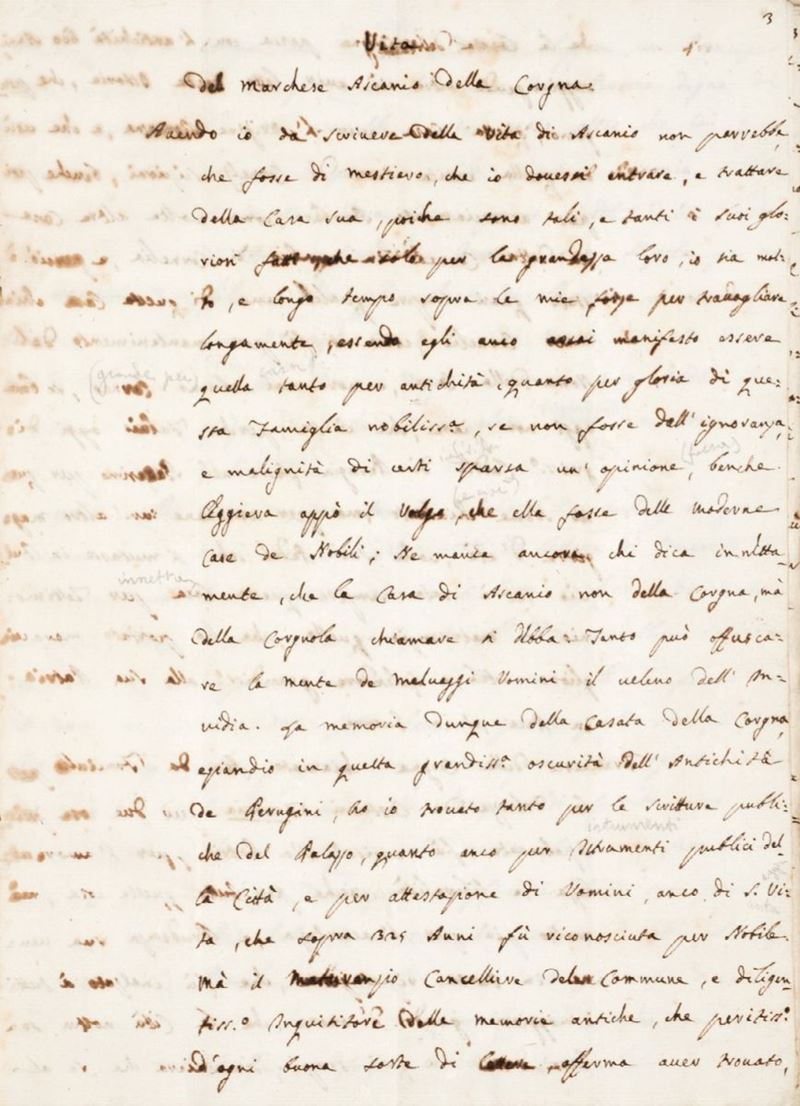 3
Vita
Del Marchese Ascanio Della Corgna.
Avendo io da scrivere della Vita di Ascanio non parrebbe,
che fosse di mestiero, che io dovessi entrare, e trattare
della Casa sua, poiche sono tali, e tanti i suoi glo:
riosi fatti che per la grandezza loro, io sia mol:
to, e longo tempo sopra le mie forze per travagliare
longamente, essendo egli anco assai manifesto essere
quella tanto per antichità, quanto per gloria di que:
sta Famiglia nobiliss.ª, se non fosse dall' ignoranza,
e malignità di certi sparsa un' opinione, benche
leggiera appò il Volgo, che ella fosse delle moderne
Case de Nobili; Ne manca ancora, chi dica innetta
innetta
mente, che la Casa di Ascanio non della Corgna, mà
della Corgnola chiamare si debba: Tanto può offusca:
re la mente de malvaggi Uomini il veleno dell' In-
vidia. La memoria dunque della Casata della Corgna,
eziandio in quella grandiss.ª oscurità dell' Antichità
de Perugini, ho io trovato tanto per le scritture publi:
che del Palazzo, quanto anco per Istrumenti publici del
istrumenti
la Città, e per attestazione di Uomini, anco di S. Vi:
ta, che sopra 325 Anni fù riconosciuta per Nobile.
Mà il Cancelliere del Commune, e diligen
tiss.º Inquisitore delle memorie antiche, che peritiss.º
d'ogni buona sorte di lettere, afferma aver trovato,